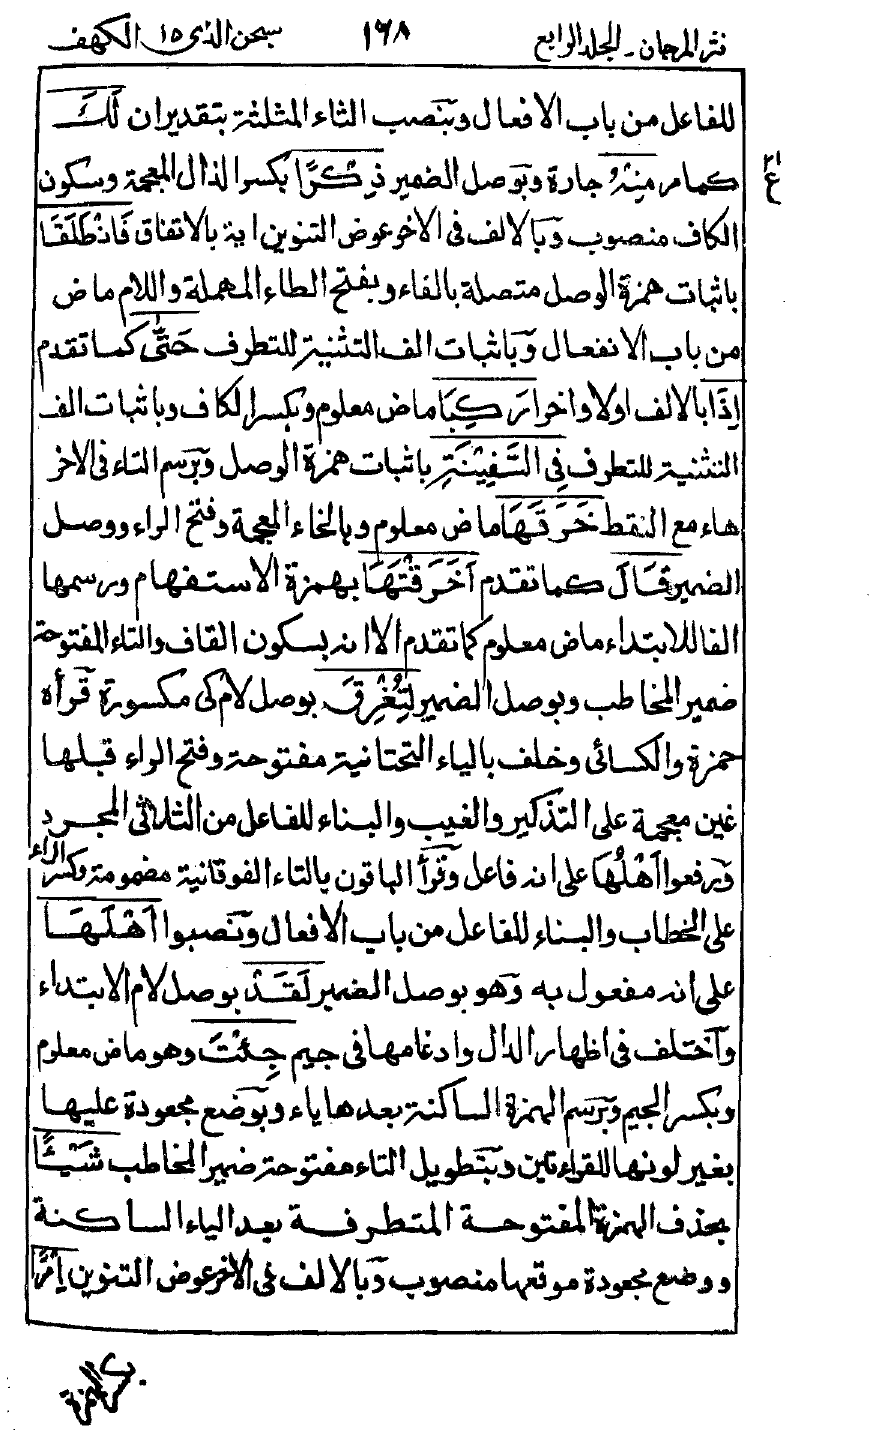 نثر المرجان ـ المجلد الرابع ١٦٨ سبحن الذى ١٥ الكهف
للفاعل من باب الافعال وبنصب الثاء المثلثة بتقدير ان لَكَ
كما مر مِنْهُ جارة وبوصل الضمير ذِكْرًا بكسر الذال المعجمة وسكون
الكاف منصوب وبالالف فى الاخر عوض التنوين اية بالاتفاق فَانْطَلَقَا
باثبات همزة الوصل متصلة بالفاء وبفتح الطاء المهملة واللام ماض
من باب الانفعال وباثبات الف التثنية للتطرف حَتّٰى كما تقدم
اِذَا بالالف اولا واخرا رَكِبَا ماض معلوم وبكسر الكاف وباثبات الف
التثنية للتطرف فِى السَّفِيْنَةِ باثبات همزة الوصل وبرسم التاء فى الاخر
هاء مع النقط خَرَقَهَا ماض معلوم وبالخاء المعجمة وفتح الراء ووصل
الضمير قَالَ كما تقدم اَخَرَقْتَهَا بهمزة الاستفهام ورسمها
الفا للابتداء ماض معلوم كما تقدم الا انه بسكون القاف والتاء المفتوحة
ضمير المخاطب وبوصل الضمير لِتُغْرِقَ بوصل لام كى مكسورة قرأه
حمزة والكسائى وخلف بالياء التحتانية مفتوحة وفتح الراء قبلها
غين معجمة على التذكير والغيب والبناء للفاعل من الثلاثى المجرد
ورفعوا اَهْلُهَا على انه فاعل وقرأ الباقون بالتاء الفوقانية مضمومة وكسر الراء
على الخطاب والبناء للفاعل من باب الافعال ونصبوا اَهْلَهَا
على انه مفعول به وهو بوصل الضمير لَقَدْ بوصل لام الابتداء
واختلف فى اظهار الدال وادغامها فى جيم جِئْتَ وهو ماض معلوم
وبكسر الجيم وبرسم الهمزة الساكنة بعدها ياء وبوضع مجعودة عليها
بغير لونها للقراءتين وبتطويل التاء مفتوحة ضمير المخاطب شَيْئًا
بحذف الهمزة المفتوحة المتطرفة بعد الياء الساكنة
ووضع مجعودة موقعها منصوب وبالالف فى الاخر عوض التنوين اِمْرًا
بكسر الهمزة